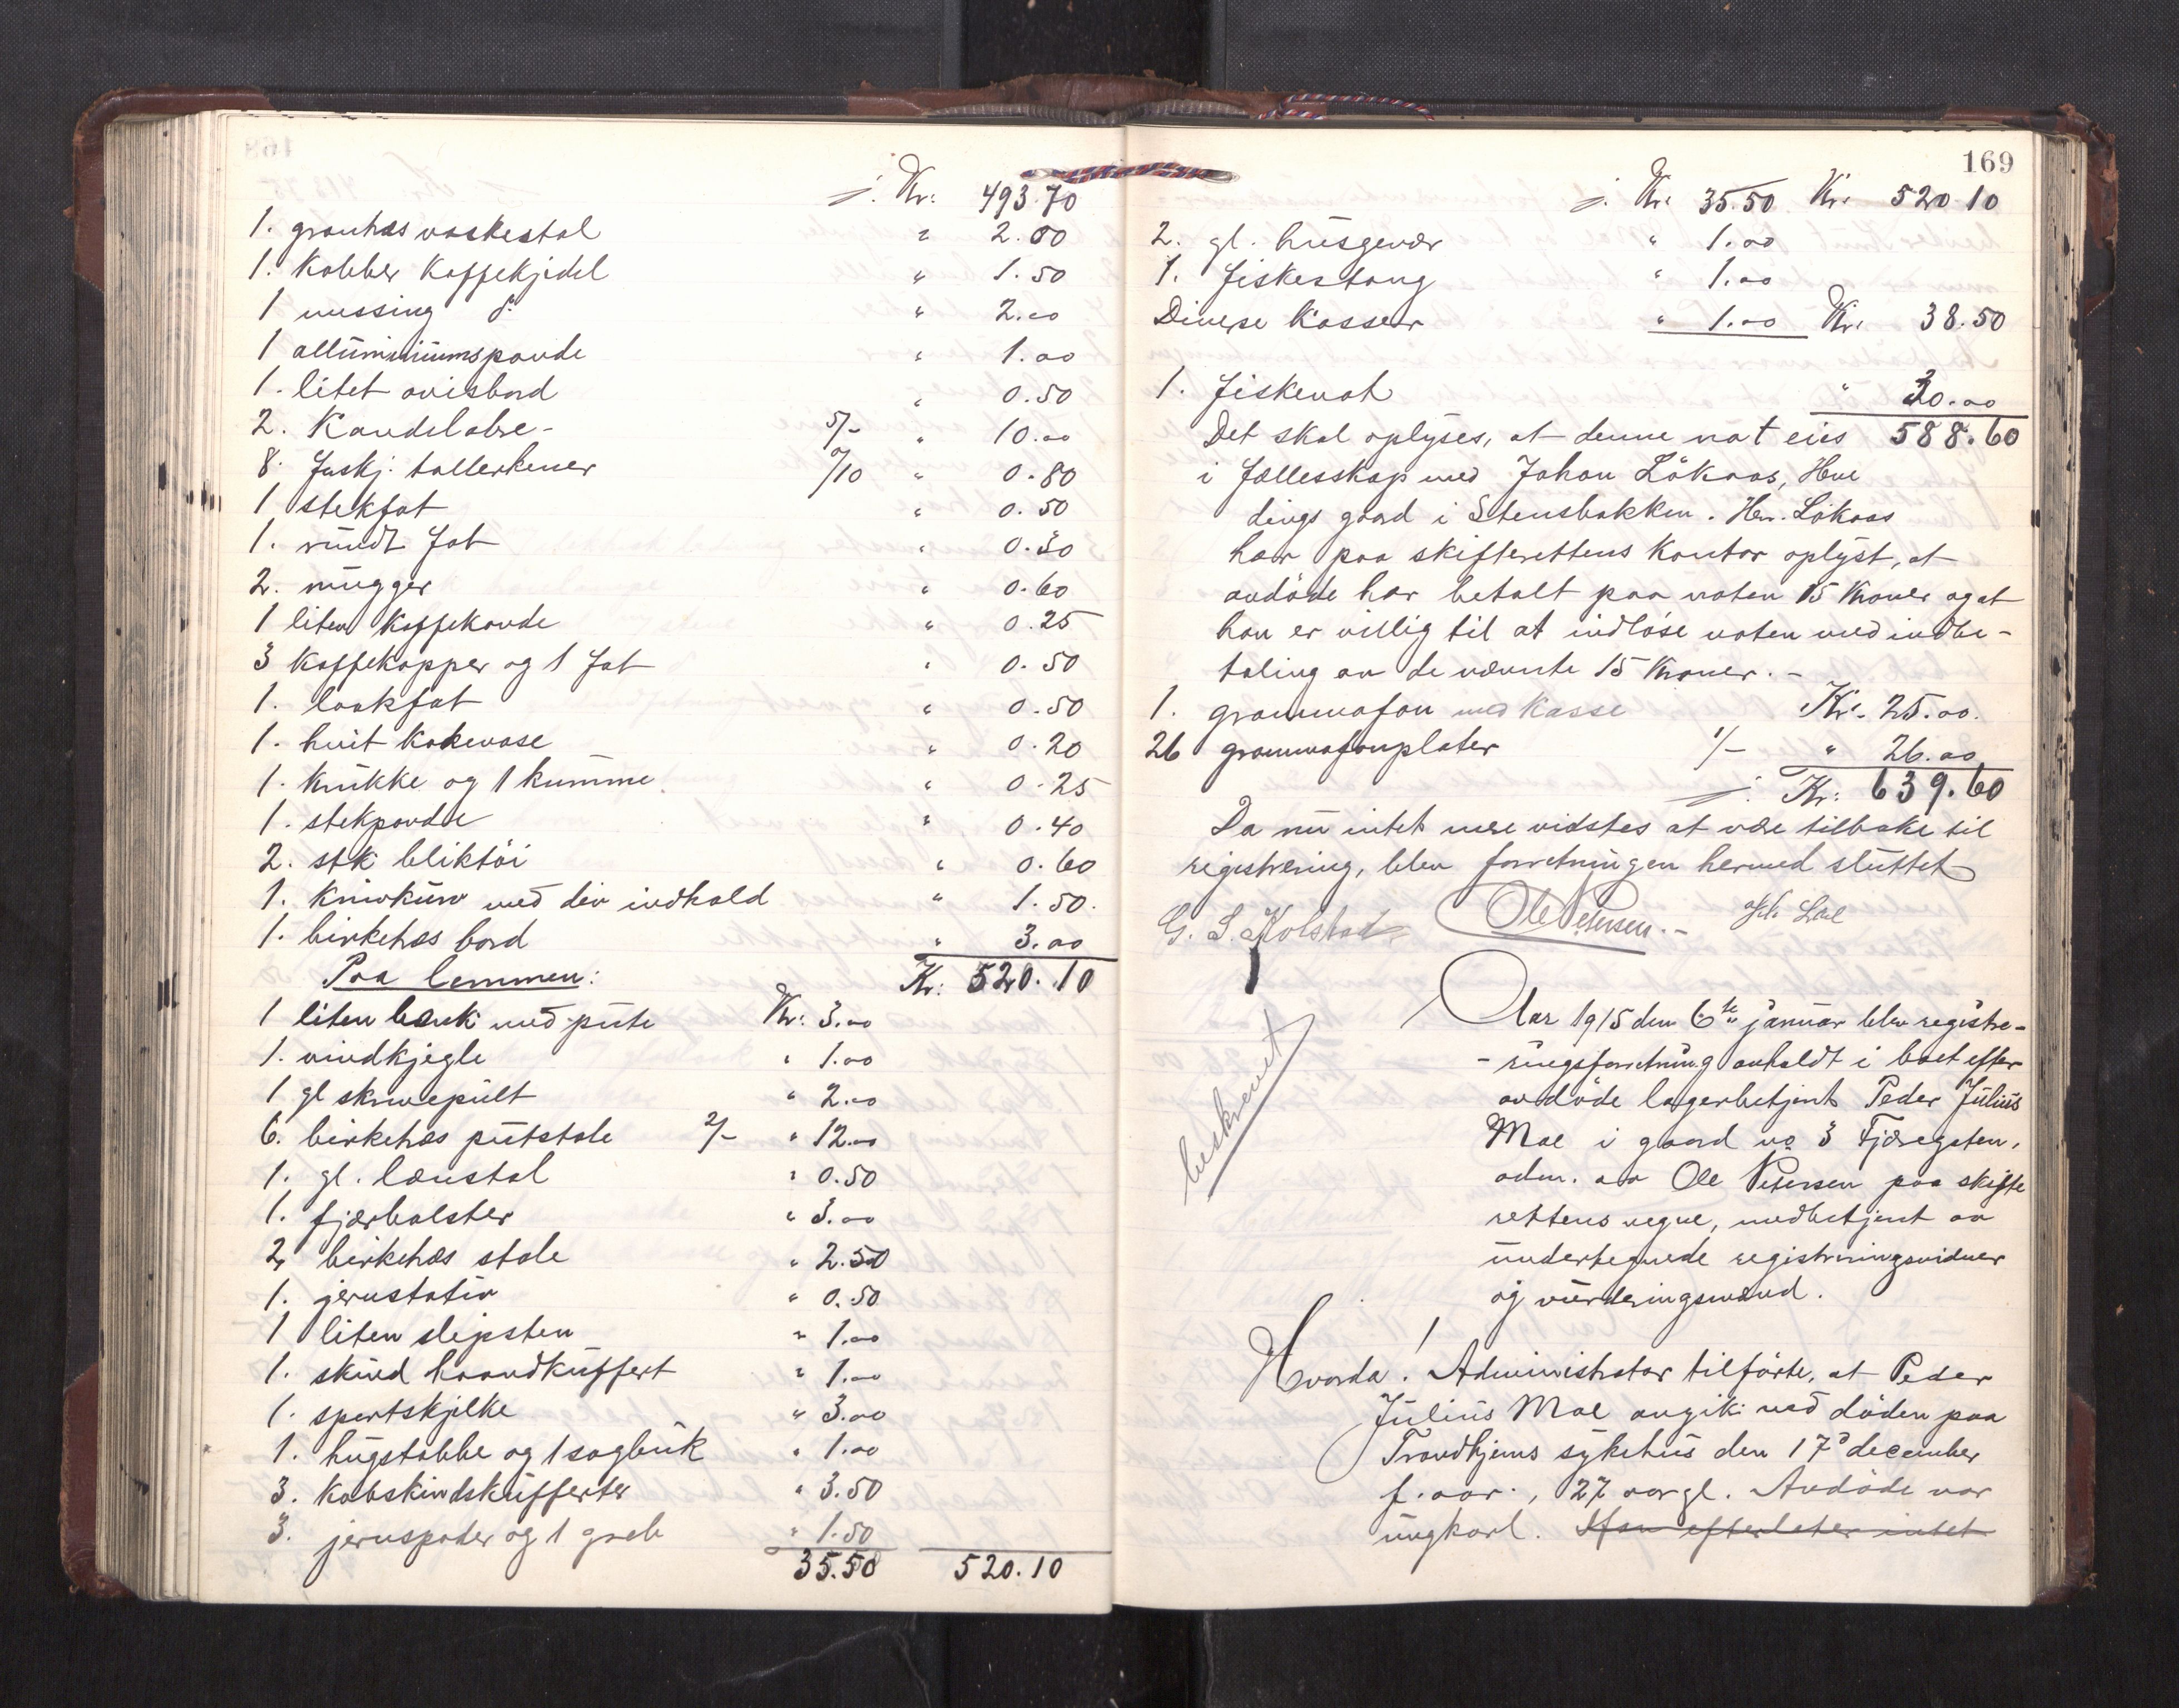 j. Kr: 493.70
1. granhæs vaskestol " 2.00
1. Kobber Kaffekjedel " 1.50
1 messing do " 2.00
1 alluminiumspande " 1.00
1. litet avisbord " 0.50
2. Kandelabre - 5/- " 10.00
8. Jaskj. tallerkener /10 " 0.80
1 stekfat " 0.50
1. rundt Fat " 0.30
2. mugger " 0.60
1 liten Kaffekande " 0.25
3 Kaffekopper og 1 Fat " 0.50
1. laakfat " 0.50
1. hvit Kakevase " 0.20
1. Krukke og 1 kumme " 0.25
1. stekpande " 0.40
2. stk bliktöi " 0.60
1. Knivkurv med div indhold " 1.50.
1. birkehæs bord " 3.00
Paa lemmen: Kr: 520.10
1 liten bænk med pute Kr: 3.00
1. vindkjegle " 1.00
1 gl skrivepult " 2.00
6. birkehæs putstole 2/- " 12.00
1. gl. lænstol " 0.50
1. fjærbolster " 3.00
2 birkehæs stole " 2.50
1. jernstativ " 0.50
1 liten slipsten " 1.00
1. skind haandkuffert " 1.00
1. sportskjelke " 3.00
1. hugstabbe og 1 sagbuk " 1.00
3. Kobskindskufferter " 3.50
3. jernspader og 1 greb " 1.50
35.50 520.10
169
j. Kr. 35.50 Kr. 520 10
2. gl. husgevær " 1.00
1. fiskestang " 1.00
Diverse Kasser " 1.00 Kr. 38.50
1. fiskenot " 30.00
Det skal oplyses, at denne not eies 588.60
i fællesskap med Johan Lökaas, Hve
dings gaard i Stensbakken. Hr. Lökaas
har paa skifterettens Kontor oplyst, at
avdöde har betalt paa noten 15 Kroner og at
han er villig til at indlöse noten med indbe-
taling av de nævnte 15 Kroner. -
1. grammofon med Kasse Kr. 25.00.
26 grammofonplater 1/- " 26.00
j. Kr: 639.60
Da nu intet mere vidstes at være tilbake til
registrering, blev forretningen hermed sluttet
G. S. Kolstad Ole Petersen. -
beskrevet
Aar 1915 den 6te januar blev registre-
- ringsforretning avholdt i boet efter
avdöde lagerbetjent Peder Julius
Moe i gaard no 3 Fjæregaten,
adm. av Ole Petersen paa skifte
rettens vegne, medbetjent av
undertegnede registreringsvidner
og vurderingsmænd.
Hvorda! Administrator tilförte, at Peder
Julius Moe avgik ved döden paa
Trondhjems sykehus den 17de december
f. aar., 27 aar gl. Avdöde var
ungkarl. Han efterlater intet